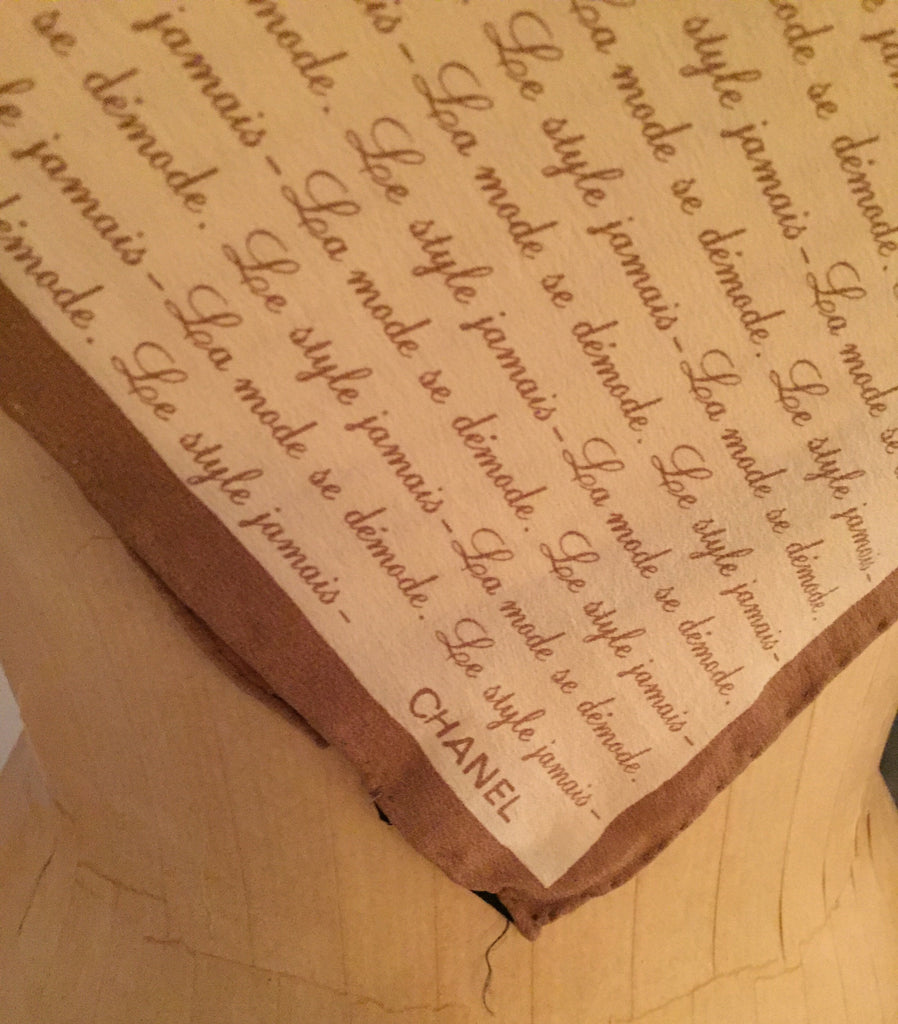 ode se démode.
style jamais - La mode se
La mode se démode. Le style jamais -
Le style jamais - La mode se démode.
is - La mode se démode. Le style jamais -
mode. Le style jamais - La mode se démode.
jamais - La mode se démode. Le style jamais -
se démode. Le style jamais - La mode se démode.
le jamais - La mode se démode. Le style jamais -
démode. Le style jamais -
CHANEL